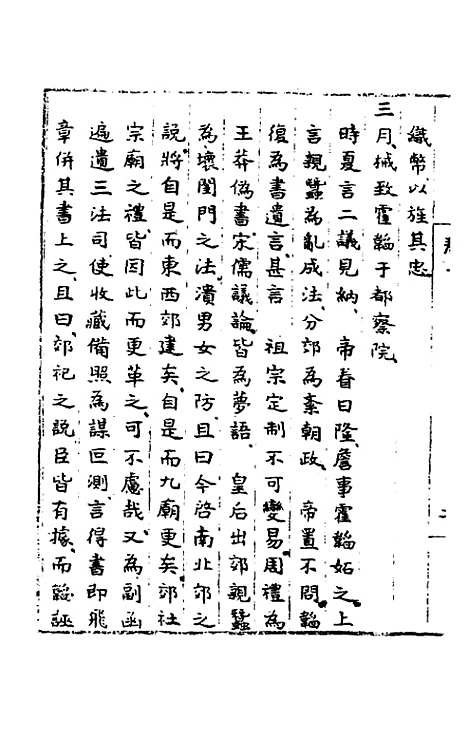 織幣以旌其忠
三月械致霍韜于都察院
時夏言二議見納帝眷日隆詹事霍韜妬之上
言親蠶為亂成法分郊為紊朝政　帝置不問韜
復為書遺言甚言　祖宗定制不可變易周禮為
王莽偽書宋儒議論皆為夢語　皇后出郊親蠶
為壞閨門之法潰男女之防且曰今啓南北郊之
説將自是而東西郊建矣自是而九廟更矣郊社
宗廟之禮皆因此而更革之可不慮哉又為副函
遍遺三法司使收藏備照為謀叵測言得書即飛
章併其書上之且曰郊祀之説臣皆有據而韜誣